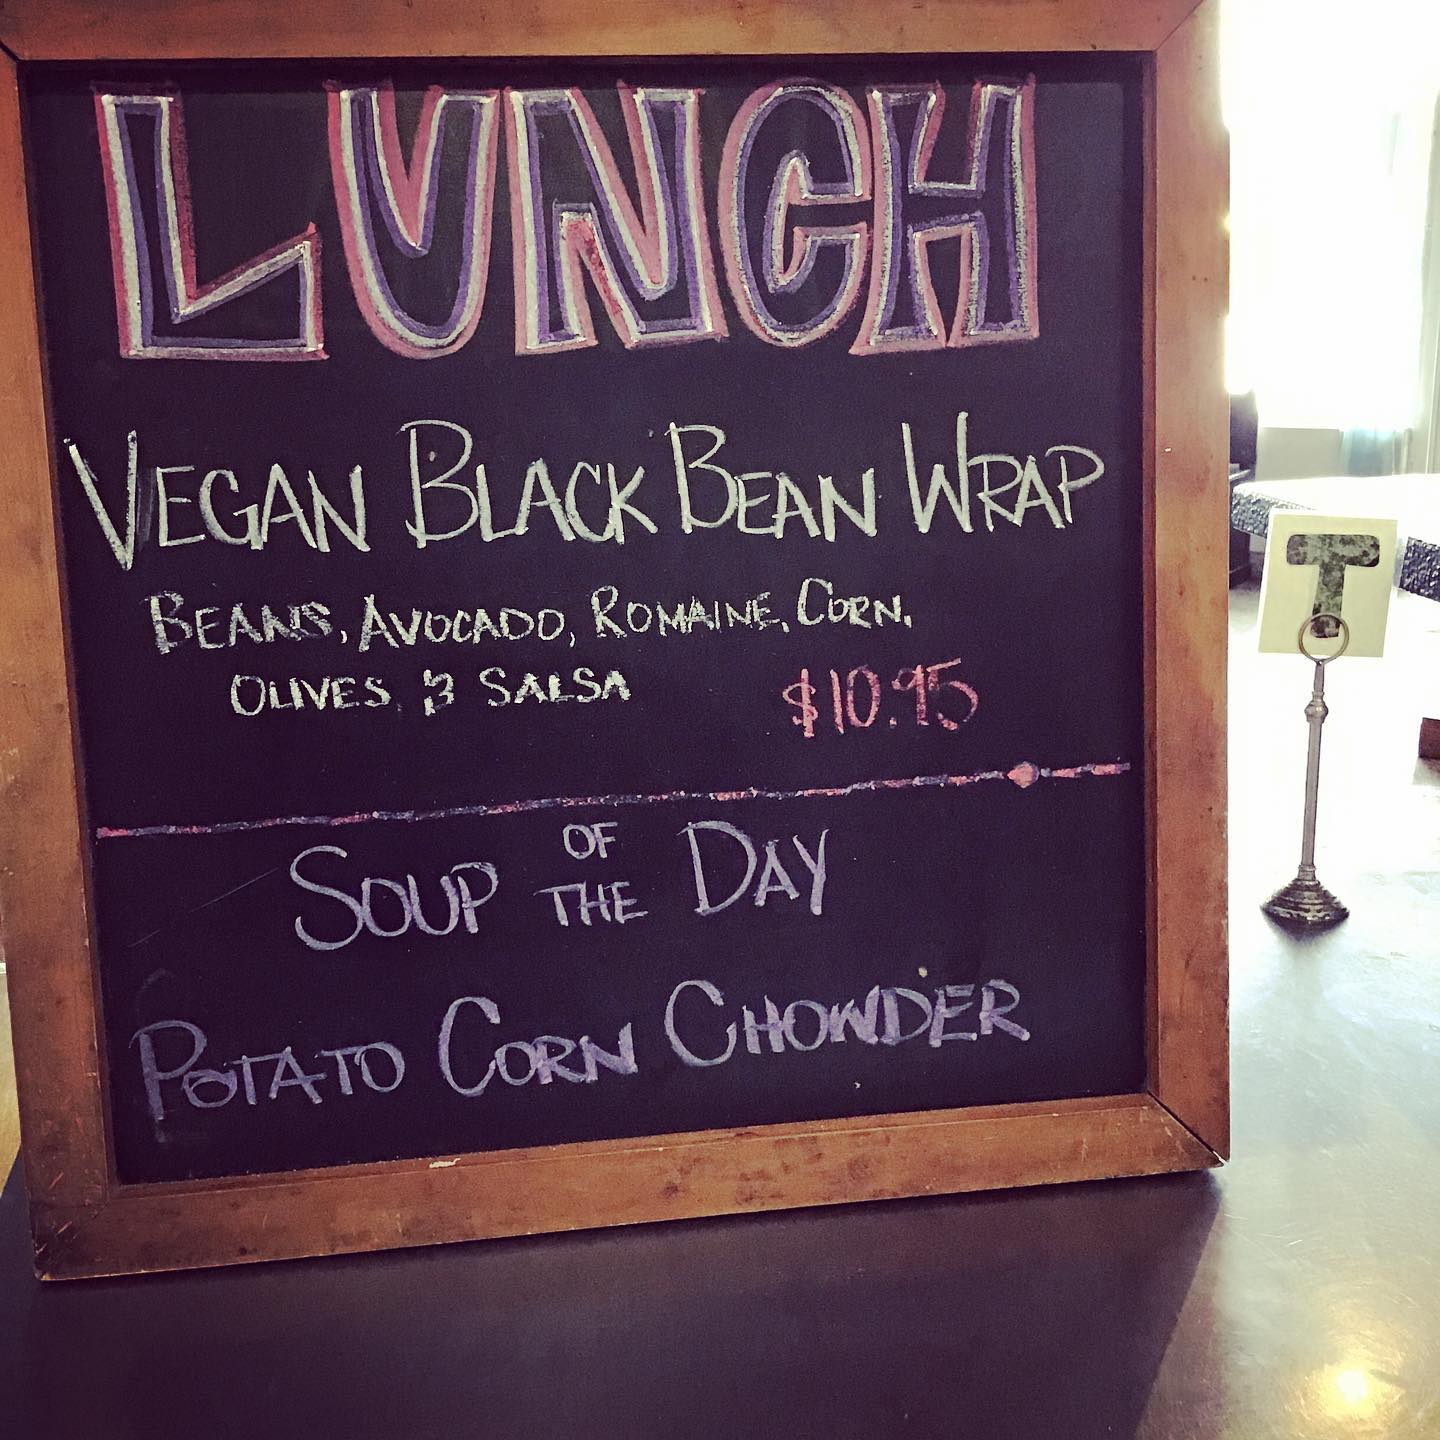 LUNCH
VEGAN BLACK BEAN WRAP
BEANS, AVOCADO, ROMAINE, CORN,
OLIVES, & SALSA $10.95
SOUP OF THE DAY
POTATO CORN CHOWDER
T